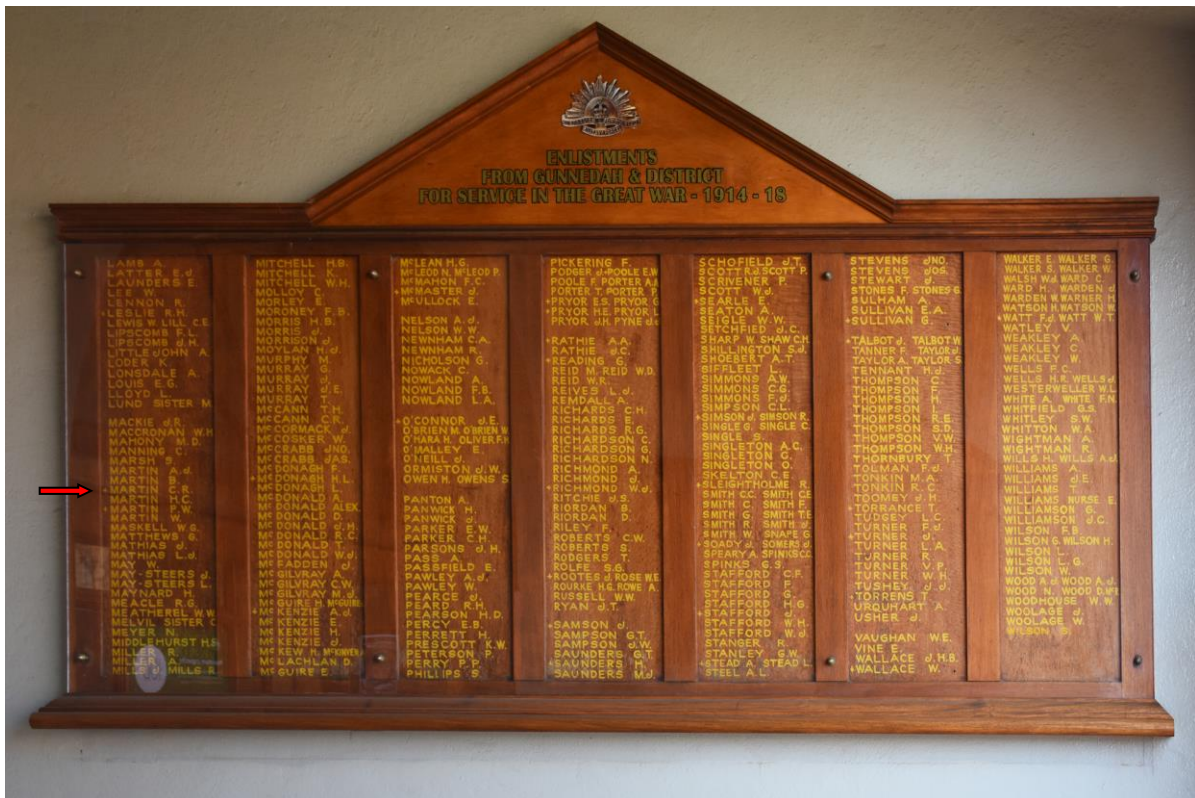 ENLISTMENTS
FROM GUNNEDAH & DISTRICT
FOR SERVICE IN THE GREAT WAR - 1914 - 18
LAMB A.
LATTER E.J.
LAUNDERS E.
LEE W.
LENNON R.
LESLIE R.H.
LEWIS W. LILL C.E.
LIPSCOMB F.L.
LIPSCOMB J.H.
LITTLEJOHN A.
LODER K.
LONSDALE A.
LOUIS E.G.
LLOYD L.
LUND SISTER M.
MACKIE J.R.
MACRONAL W.H.
MAHONY M.D.
MANNING C.
MARSH S.
MARTIN A.J.
MARTIN B.
MARTIN C.R.
MARTIN H.C.
MARTIN P.W.
MARTIN W.
MASKELL W.G.
MATTHEWS G.
MATHIAS J.
MATHIAS L.J.
MAY W.
MAY-STEERS J.
MAY-STEERS L.
MAYNARD H.
MEACLE R.G.
MEATHEREL W.W.
MELVIL SISTER C.
MEYER N.
MIDDLEHURST H.S.
MILLER R.
MILLER A.
MILLS J. MILLS R.
MITCHELL H.B.
MITCHELL K.
MITCHELL W.H.
MOLLOY C.
MORLEY E.
MORONEY F.B.
MORRIS H.B.
MORRIS J.
MORRISON J.
MOYLAN H.J.
MURPHY M.
MURRAY G.
MURRAY J.
MURRAY J.E.
MURRAY T.
McCANN T.H.
McCANN C.R.
McCORMACK J.
McCOSKER W.
McCRABB JNO.
McCRABB JAS.
McDONAGH F.
McDONAGH K.L.
McDONALD A.
McDONALD ALEX.
McDONALD D.
McDONALD J.H.
McDONALD R.C.
McDONALD T.
McDONALD W.J.
McFADDEN J.
McGILVRAY A.
McGILVRAY C.W.
McGILVRAY M.J.
McGUIRE H. McGUIRE
McKENZIE A.J.
McKENZIE E.
McKENZIE H.
McKENZIE J.
McKEW H. McKINVEN
McLACHLAN D.
McGUIRE E.
McLEAN H.G.
McLEOD N. McLEOD P.
McMAHON F.C.
McMASTER J.
McCULLOCK E.
NELSON A.J.
NELSON W.W.
NEWNHAM C.A.
NEWNHAM R.
NICHOLSON G.
NOWACK C.
NOWLAND A.
NOWLAND F.B.
NOWLAND L.A.
O'CONNOR J.E.
O'BRIEN M. O'BRIEN W.
O'HARA H. OLIVER F.H.
O'MALLEY E.
O'NEILL J.
ORMISTON J.W.
OWEN H. OWENS S.
PANTON A.
PANWICK H.
PANWICK J.
PARKER E.W.
PARKER C.H.
PARSONS J.H.
PASS A.
PASSFIELD E.
PAWLEY A.J.
PAWLEY W.
PEARCE J.
PEARD R.H.
PEARSON H.D.
PERCY E.B.
PERRETT H.
PRESCOTT K.W.
PETERSON P.
PERRY P.P.
PHILLIPS S.
PICKERING F.
PODGER J. POOLE E.W.
POOLE F. PORTER A.J.
PORTER T. PORTER P.
PRYOR E.S. PRYOR G.
PRYOR H.E. PRYOR L.
PRYOR J.H. PYNE J.
RATHIE A.A.
RATHIE J.C.
READING G.
REID M. REID W.D.
REID W.R.
REIVES L.J.
REMDALL A.
RICHARDS C.H.
RICHARDS E.
RICHARDS R.G.
RICHARDSON C.
RICHARDSON G.
RICHARDSON N.
RICHMOND A.
RICHMOND J.
RICHMOND W.J.
RITCHIE J.S.
RIORDAN B.
RIORDAN D.
RILEY F.
ROBERTS C.W.
ROBERTS S.
ROBERTS T.
ROLFE S.G.
ROOTES J. ROSE W.E.
ROURKE H.G. ROWE A.
RUSSELL W.W.
RYAN J.T.
SAMSON J.
SAMPSON G.T.
SAMPSON J.W.
SAUNDERS G.T.
SAUNDERS H.
SAUNDERS M.J.
SCHOFIELD J.T.
SCOTT R.J. SCOTT P.
SCRIVENER P.
SCOTT W.J.
SEARLE E.
SEATON A.
SEIGLE W.W.
SETCHFIELD J.C.
SHARP W. SHAW C.H.
SHILLINGTON S.J.
SHOEBERT A.G.
SIFFLEET L.
SIMMONS A.W.
SIMMONS C.G.
SIMMONS F.J.
SIMPSON C.L.
SIMSON J. SIMSON R.
SINGLE G. SINGLE C.
SINGLE S.
SINGLETON A.C.
SINGLETON G.
SINGLETON O.
SKELTON C.E.
SLEIGHTHOLME R.
SMITH C.C. SMITH C.E.
SMITH C. SMITH F.
SMITH G. SMITH T.E.
SMITH R. SMITH J.
SMITH W. SNAPE G.
SOADY J. SOWERS J.
SPEARY A. SPINKS C.C.
SPINKS G.S.
STAFFORD C.F.
STAFFORD B.
STAFFORD G.
STAFFORD H.G.
STAFFORD J.
STAFFORD W.H.
STAFFORD W.J.
STANGER R.
STANLEY G.W.
STEAD A. STEAD L.
STEEL A.L.
STEVENS JNO.
STEVENS JOS.
STEWART J.
STONES F. STONES G.
SULHAM A.
SULLIVAN E.A.
SULLIVAN G.
TALBOT J. TALBOT W.
TANNER F. TAYLOR J.
TAYLOR A. TAYLOR S.
TENNANT H.J.
THOMPSON C.
THOMPSON E.
THOMPSON H.
THOMPSON L.
THOMPSON R.E.
THOMPSON S.
THOMPSON V.W.
THOMPSON W.H.
THORNBURY T.
TOLMAN F.J.
TONKIN M.A.
TONKIN R.C.
TOOMEY J.H.
TORRANCE T.
TUDGEY L.C.
TURNER F.J.
TURNER J.
TURNER L.A.
TURNER R.
TURNER V.P.
TURNER W.H.
TUSHEY J.J.
TORRENS T.
URQUHART A.
USHER J.
VAUGHAN W.E.
VINE E.
WALLACE J.H.B.
WALLACE W.
WALKER E. WALKER G.
WALKER S. WALKER W.
WALSH W.J. WARD C.
WARD H. WARDEN J.
WARDEN W. WARNER H.
WATSON H. WATSON W.
WATT F.J. WATT W.T.
WATLEY V.
WEAKLEY A.
WEAKLEY C.
WEAKLEY W.
WELLS F.C.
WELLS H.R. WELLS J.
WESTERWELLER W.
WHITE A. WHITE F.N.
WHITFIELD G.S.
WHITLEY S.W.
WHITTON W.A.
WIGHTMAN A.
WIGHTMAN R.
WILLS H. WILLS A.J.
WILLIAMS A.
WILLIAMS J.E.
WILLIAMS T.
WILLIAMS NURSE E.
WILLIAMSON G.
WILLIAMSON J.C.
WILSON F.B.
WILSON G. WILSON H.
WILSON L.
WILSON L.G.
WILSON W.
WOOD A.J. WOOD A.J.
WOOD N. WOOD D.McI.
WOODHOUSE W.W.
WOOLAGE J.
WOOLAGE W.
WILSON S.